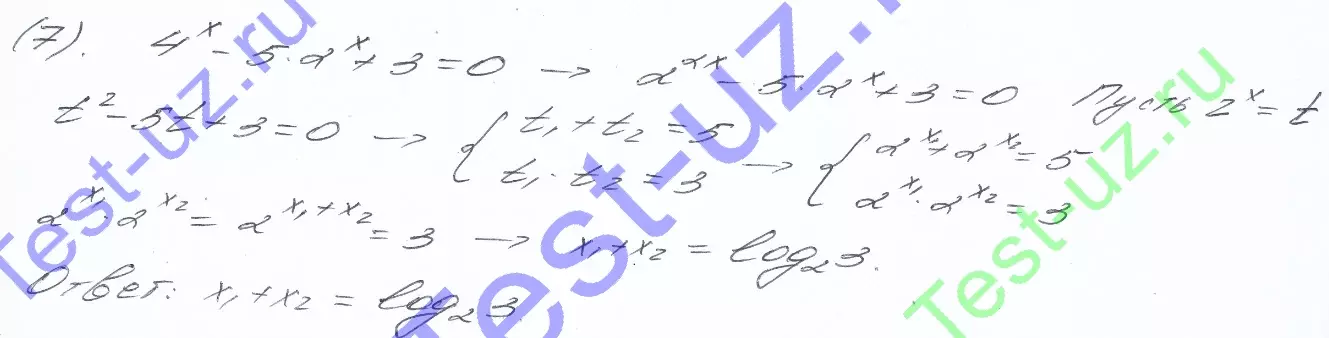 (7). 4^x - 5·2^x + 3 = 0 → 2^{2x} - 5·2^x + 3 = 0 Пусть 2^x = t
t^2 - 5t + 3 = 0 → { t_1 + t_2 = 5 t_1 · t_2 = 3 → { 2^{x_1} + 2^{x_2} = 5 2^{x_1} · 2^{x_2} = 3
2^{x_1} · 2^{x_2} = 2^{x_1 + x_2} = 3 → x_1 + x_2 = log_2 3.
Ответ: x_1 + x_2 = log_2 3
Test-uz.ru
Test-uz.ru
Test-uz.ru